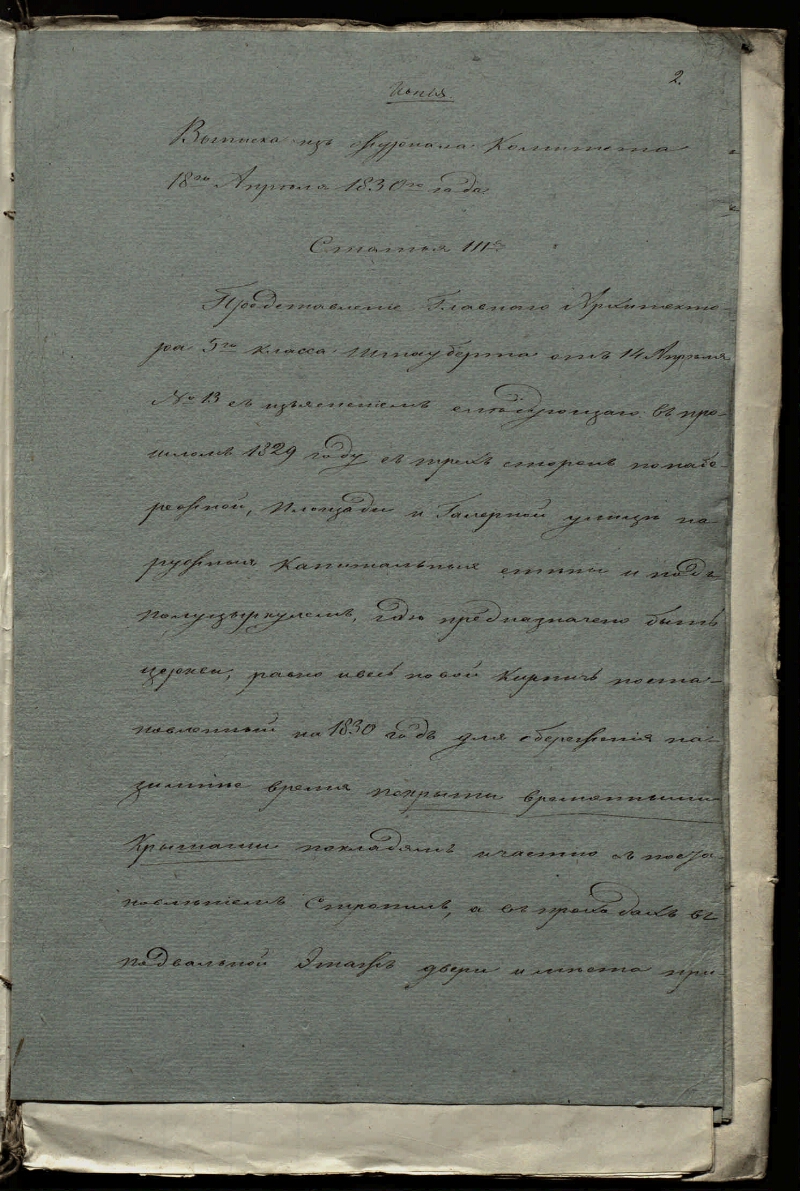 2.
Копія.
Выписка изъ Журнала Комитета
18го Апрѣля 1830го года
Статья IIIя
Представленіе Главнаго Архитекто-
ра 5го класса Штауберта отъ 14 Апрѣля
№ 13 съ изъясненіемъ слѣдующаго: въ про-
шломъ 1829 году съ трехъ сторонъ по набе-
режной, Площади и Галерной улицѣ на-
ружныя капитальныя стѣны и подъ
полуцыркулемъ, гдѣ предназначено быть
церкви, равно и весь новой кирпичъ поста-
новленный на 1830 годъ для сбереженія на
зимнѣе время покрыты временными
Крышами по кладямъ и частію съ поста-
новленіемъ Стропилъ, а въ проходахъ въ
подвальной Этажъ двери и мѣста при